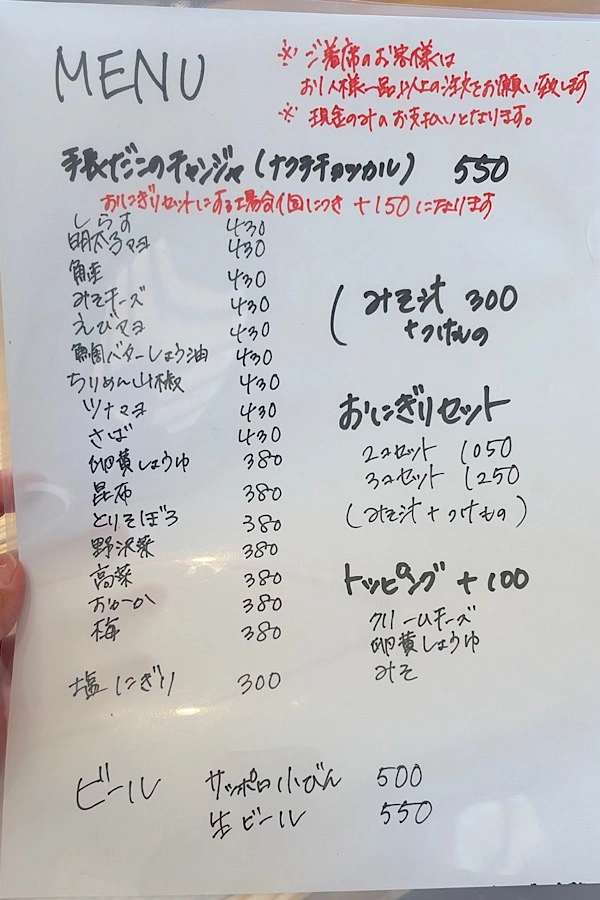 MENU
※ ご着席のお客様は
お1人様一品以上の注文をお願い致します
※ 現金のみのお支払いとなります。
手長だこのチャンジャ(ナクチチョッカル) 550
おにぎりセットにする場合1個につき +150になります
しらす 430
明太子マヨ 430
鮭 430
みそチーズ 430
えびマヨ 430
鯛バターしょうゆ油 430
ちりめん山椒 430
ツナマヨ 430
さば 430
卵黄しょうゆ 380
昆布 380
とりそぼろ 380
野沢菜 380
高菜 380
おかか 380
梅 380
塩にぎり 300
(みそ汁 300
+つけもの
おにぎりセット
2コセット 1050
3コセット 1250
(みそ汁+つけもの)
トッピング +100
クリームチーズ
卵黄しょうゆ
みそ
ビール サッポロ小びん 500
生ビール 550